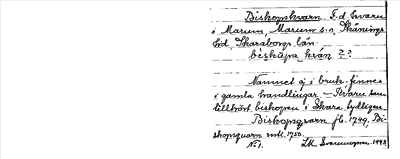 Biskopskvarn. F.d. kvarn
i Marum, Marums s:n, Skånings
hd, Skaraborgs län.
biskåpa kvan ??
Namnet ej i bruk, finnes
i gamla handlingar. – Kvarn som
tillhört biskopen i Skara tydligen
Biskopqvarn jb. 1749, Bi-
skopsquarn mtl. 1750.
No 1.